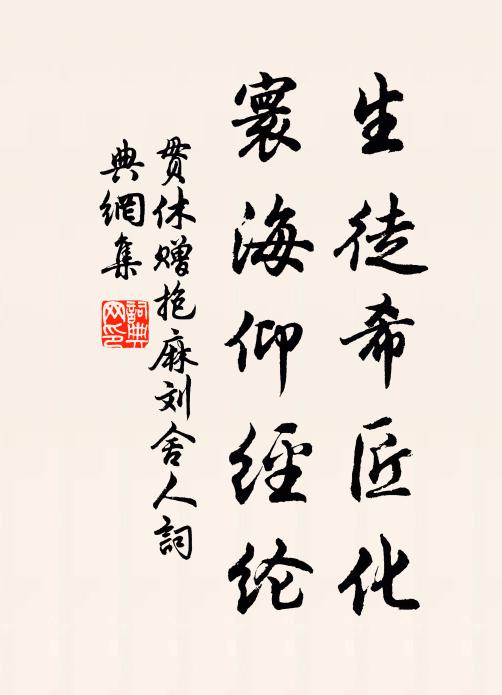 生徒希匠化
寰海仰經纶
贯休赠抱麻刘舍人詞
典網集
詞典
网印